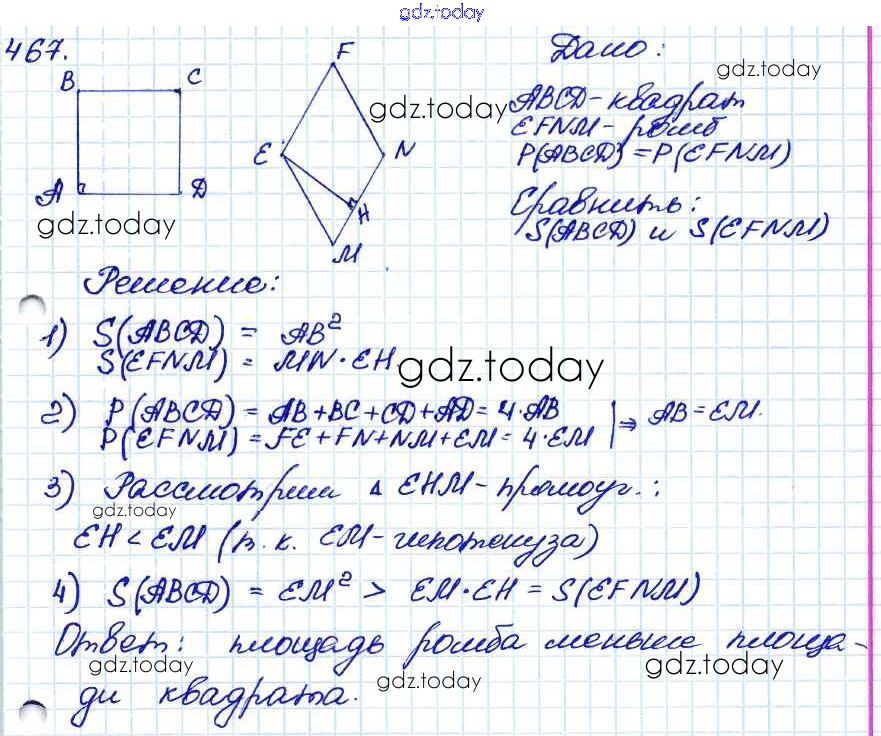 gdz.today
467.
B C
A D
F
E N
H
M
Дано:
gdz.today
gdz.today
ABCD - квадрат
EFNM - ромб
P(ABCD) = P(EFNM)
Сравнить:
S(ABCD) и S(EFNM)
gdz.today
Решение:
1) S(ABCD) = AB²
S(EFNM) = MN · EH
gdz.today
2) P(ABCD) = AB + BC + CD + AD = 4·AB
P(EFNM) = FE + FN + NM + EM = 4·EM | ⇒ AB = EM.
3) Рассмотрим Δ EHM - прямоуг.:
gdz.today
EH < EM (т.к. EM - гипотенуза)
4) S(ABCD) = EM² > EM·EH = S(EFNM)
Ответ: площадь ромба меньше площа-
gdz.today gdz.today
ди квадрата.
gdz.today